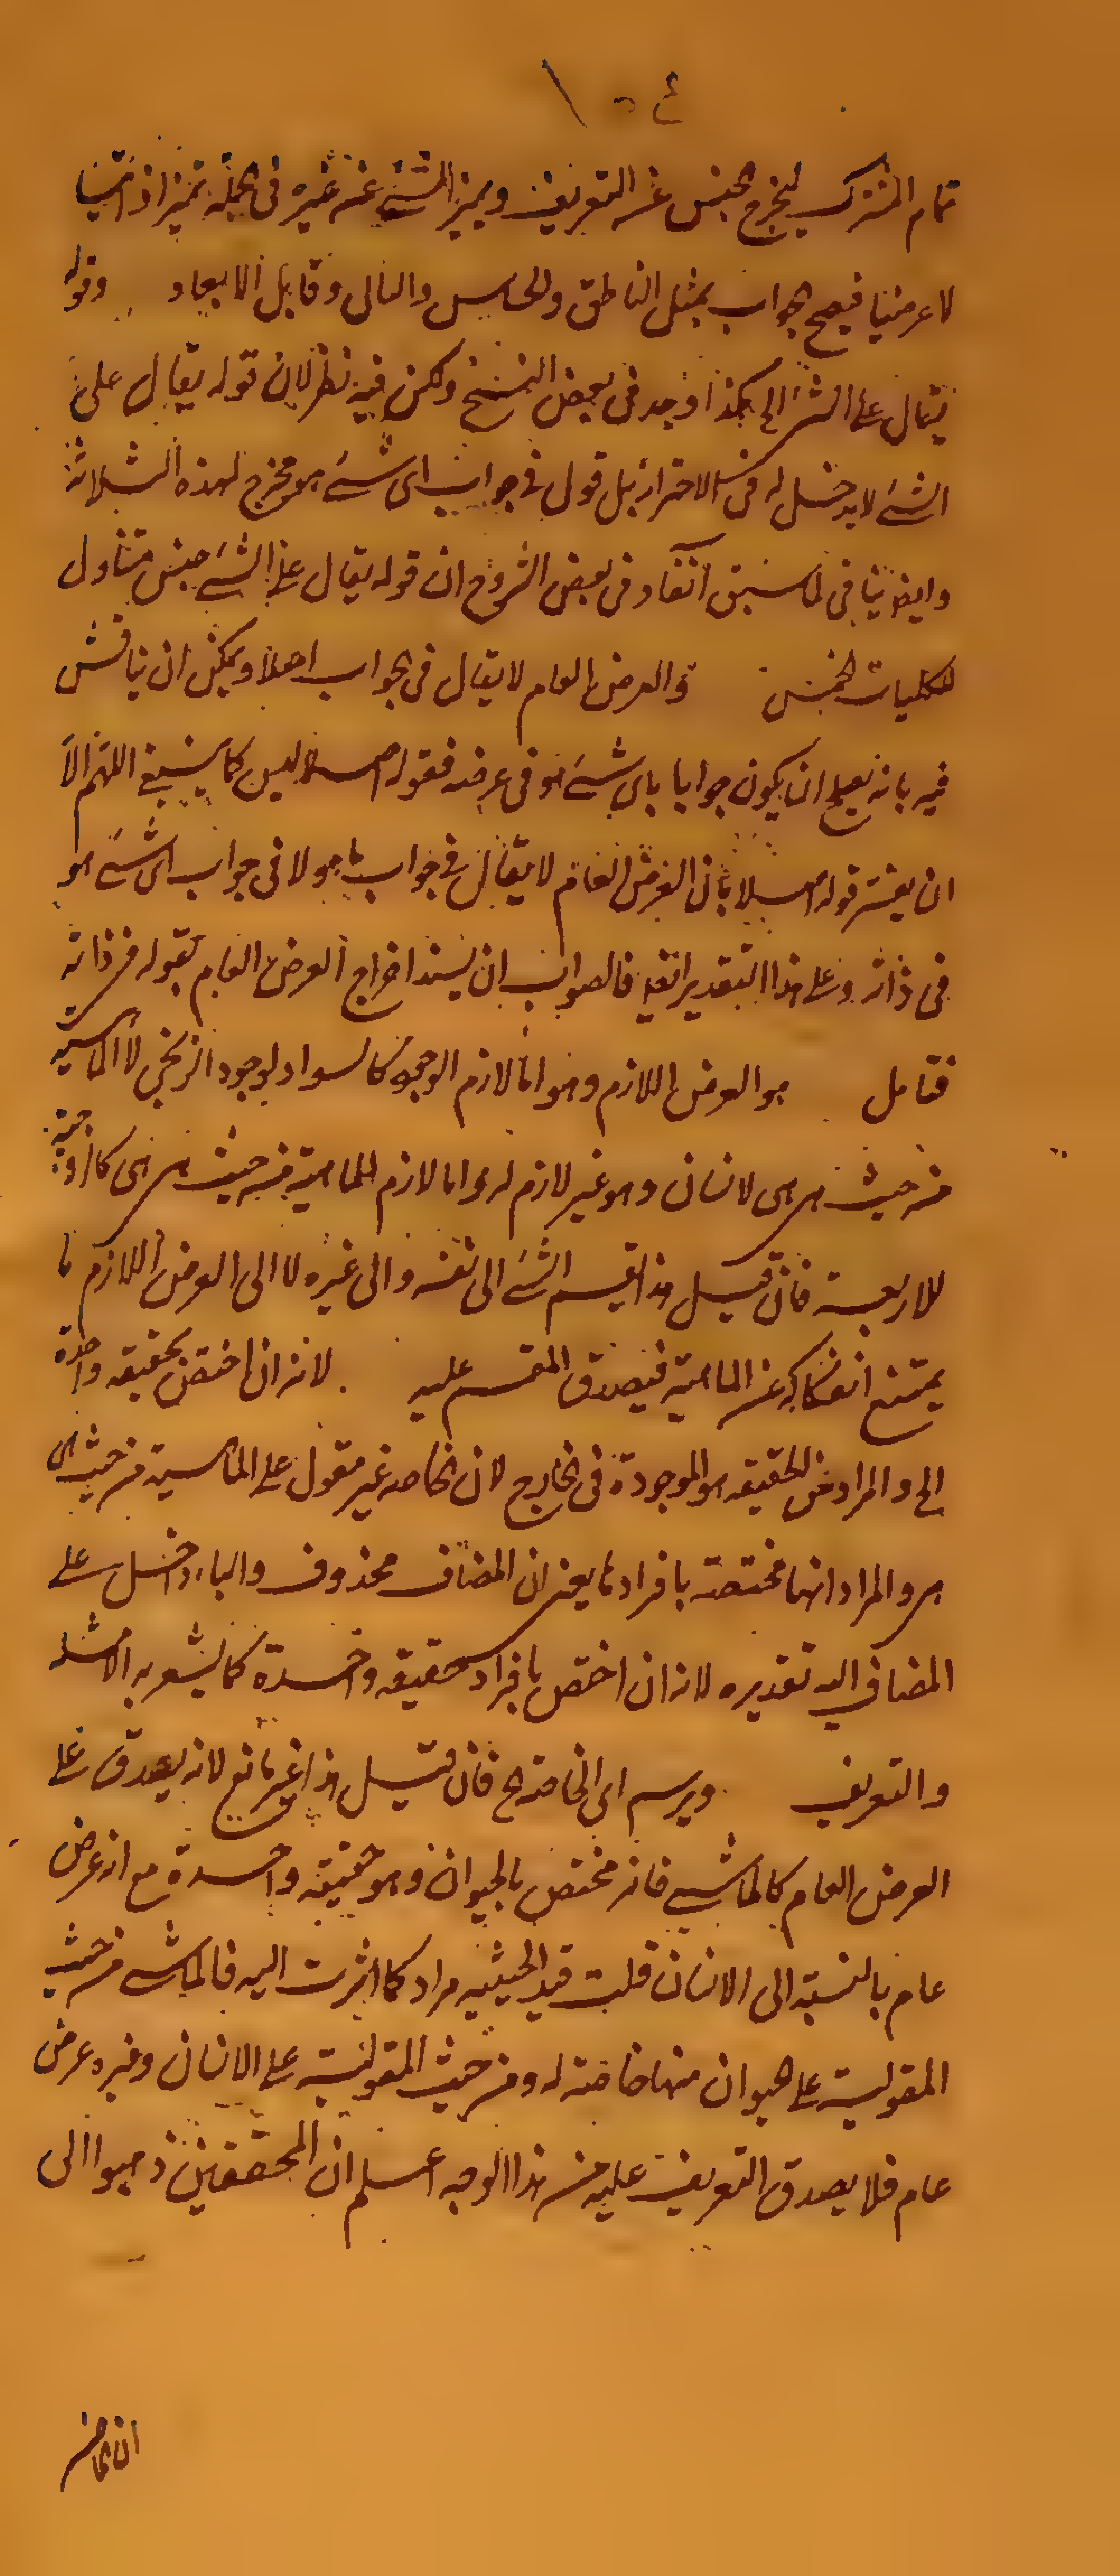 تمام المشترك ليخرج الجنس عن التعريف ويميز الشئ عن غيره في الجملة تميزا ذاتيا
لا عرضيا فيصح الجواب بمثل الناطق والحساس والنامى وقابل الابعاد وقوله
يقال على الشئ الى هكذا وجد في بعض النسخ ولكن فيه نظر لان قوله يقال على
الشئ لا يدخل له في الاحتراز بل قول في جواب اى شئ هو مخرج لهذه الثلاثة
وايضا ينافى لما سبق آنفا وفي بعض الشروح ان قوله يقال على الشئ جنس متناول
للكليات الخمس والعرض العام لا يقال في الجواب اصلا ويمكن ان يناقش
فيه بانه يصح ان يكون جوابا باى شئ هو في عرضه فقوله اصلا ليس كما ينبغي اللهم الا
ان يفسر قوله اصلا بان العرض العام لا يقال في جواب ما هو لا في جواب اى شئ هو
في ذاته وعلى هذا التقدير ايضا فالصواب ان يسند اخراج العرض العام بقوله في ذاته
فتامل هو العرض اللازم وهو اما لازم الوجود كالسواد لوجود الزنجي لا لماهيته
من حيث هي هي لانسان وهو غير لازم له واما لازم الماهية من حيث هي هي كالزوجية
للاربعة فان قيل هذا تقسيم الشئ الى نفسه والى غيره لا الى العرض اللازم ما
يمتنع انفكاكه عن الماهية فيصدق المقسم عليه لانه ان اختص بحقيقة واحدة
الى والمراد من الحقيقة هو الموجودة في الخارج لان الخاصة غير مقول على الماهية من حيث هى
هى والمراد انها مختصة بافرادها يعنى ان المضاف محذوف والباء داخل على
المضاف اليه تقديره لانه ان اختص بافراد حقيقة واحدة كما يشعر به الامثلة
والتعريف ويرسم اى الخاصة الخ فان قيل هذا غير مانع لانه يصدق على
العرض العام كالماشى فانه مختص بالحيوان وهو حقيقة واحدة مع انه عرض
عام بالنسبة الى الانسان قلت قيد الحيثية مراد كما اشرت اليه فالماشى من حيث
المقولية على الحيوان منها خاصة له ومن حيث المقولية على الانسان وغيره عرض
عام فلا يصدق التعريف عليه من هذا الوجه اعلم ان المحققين ذهبوا الى